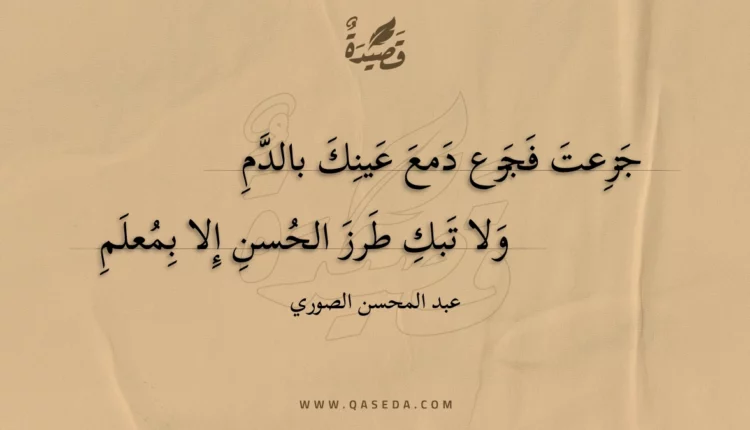 قَصِيدَةٌ
جَزِعتَ فَجَزِع دَمعَ عَينِكَ بالدَّمِ
وَلا تَبكِ طَرزَ الحُسنِ إِلا بِمُعلَمِ
عبد المحسن الصوري
WWW.QASEDA.COM